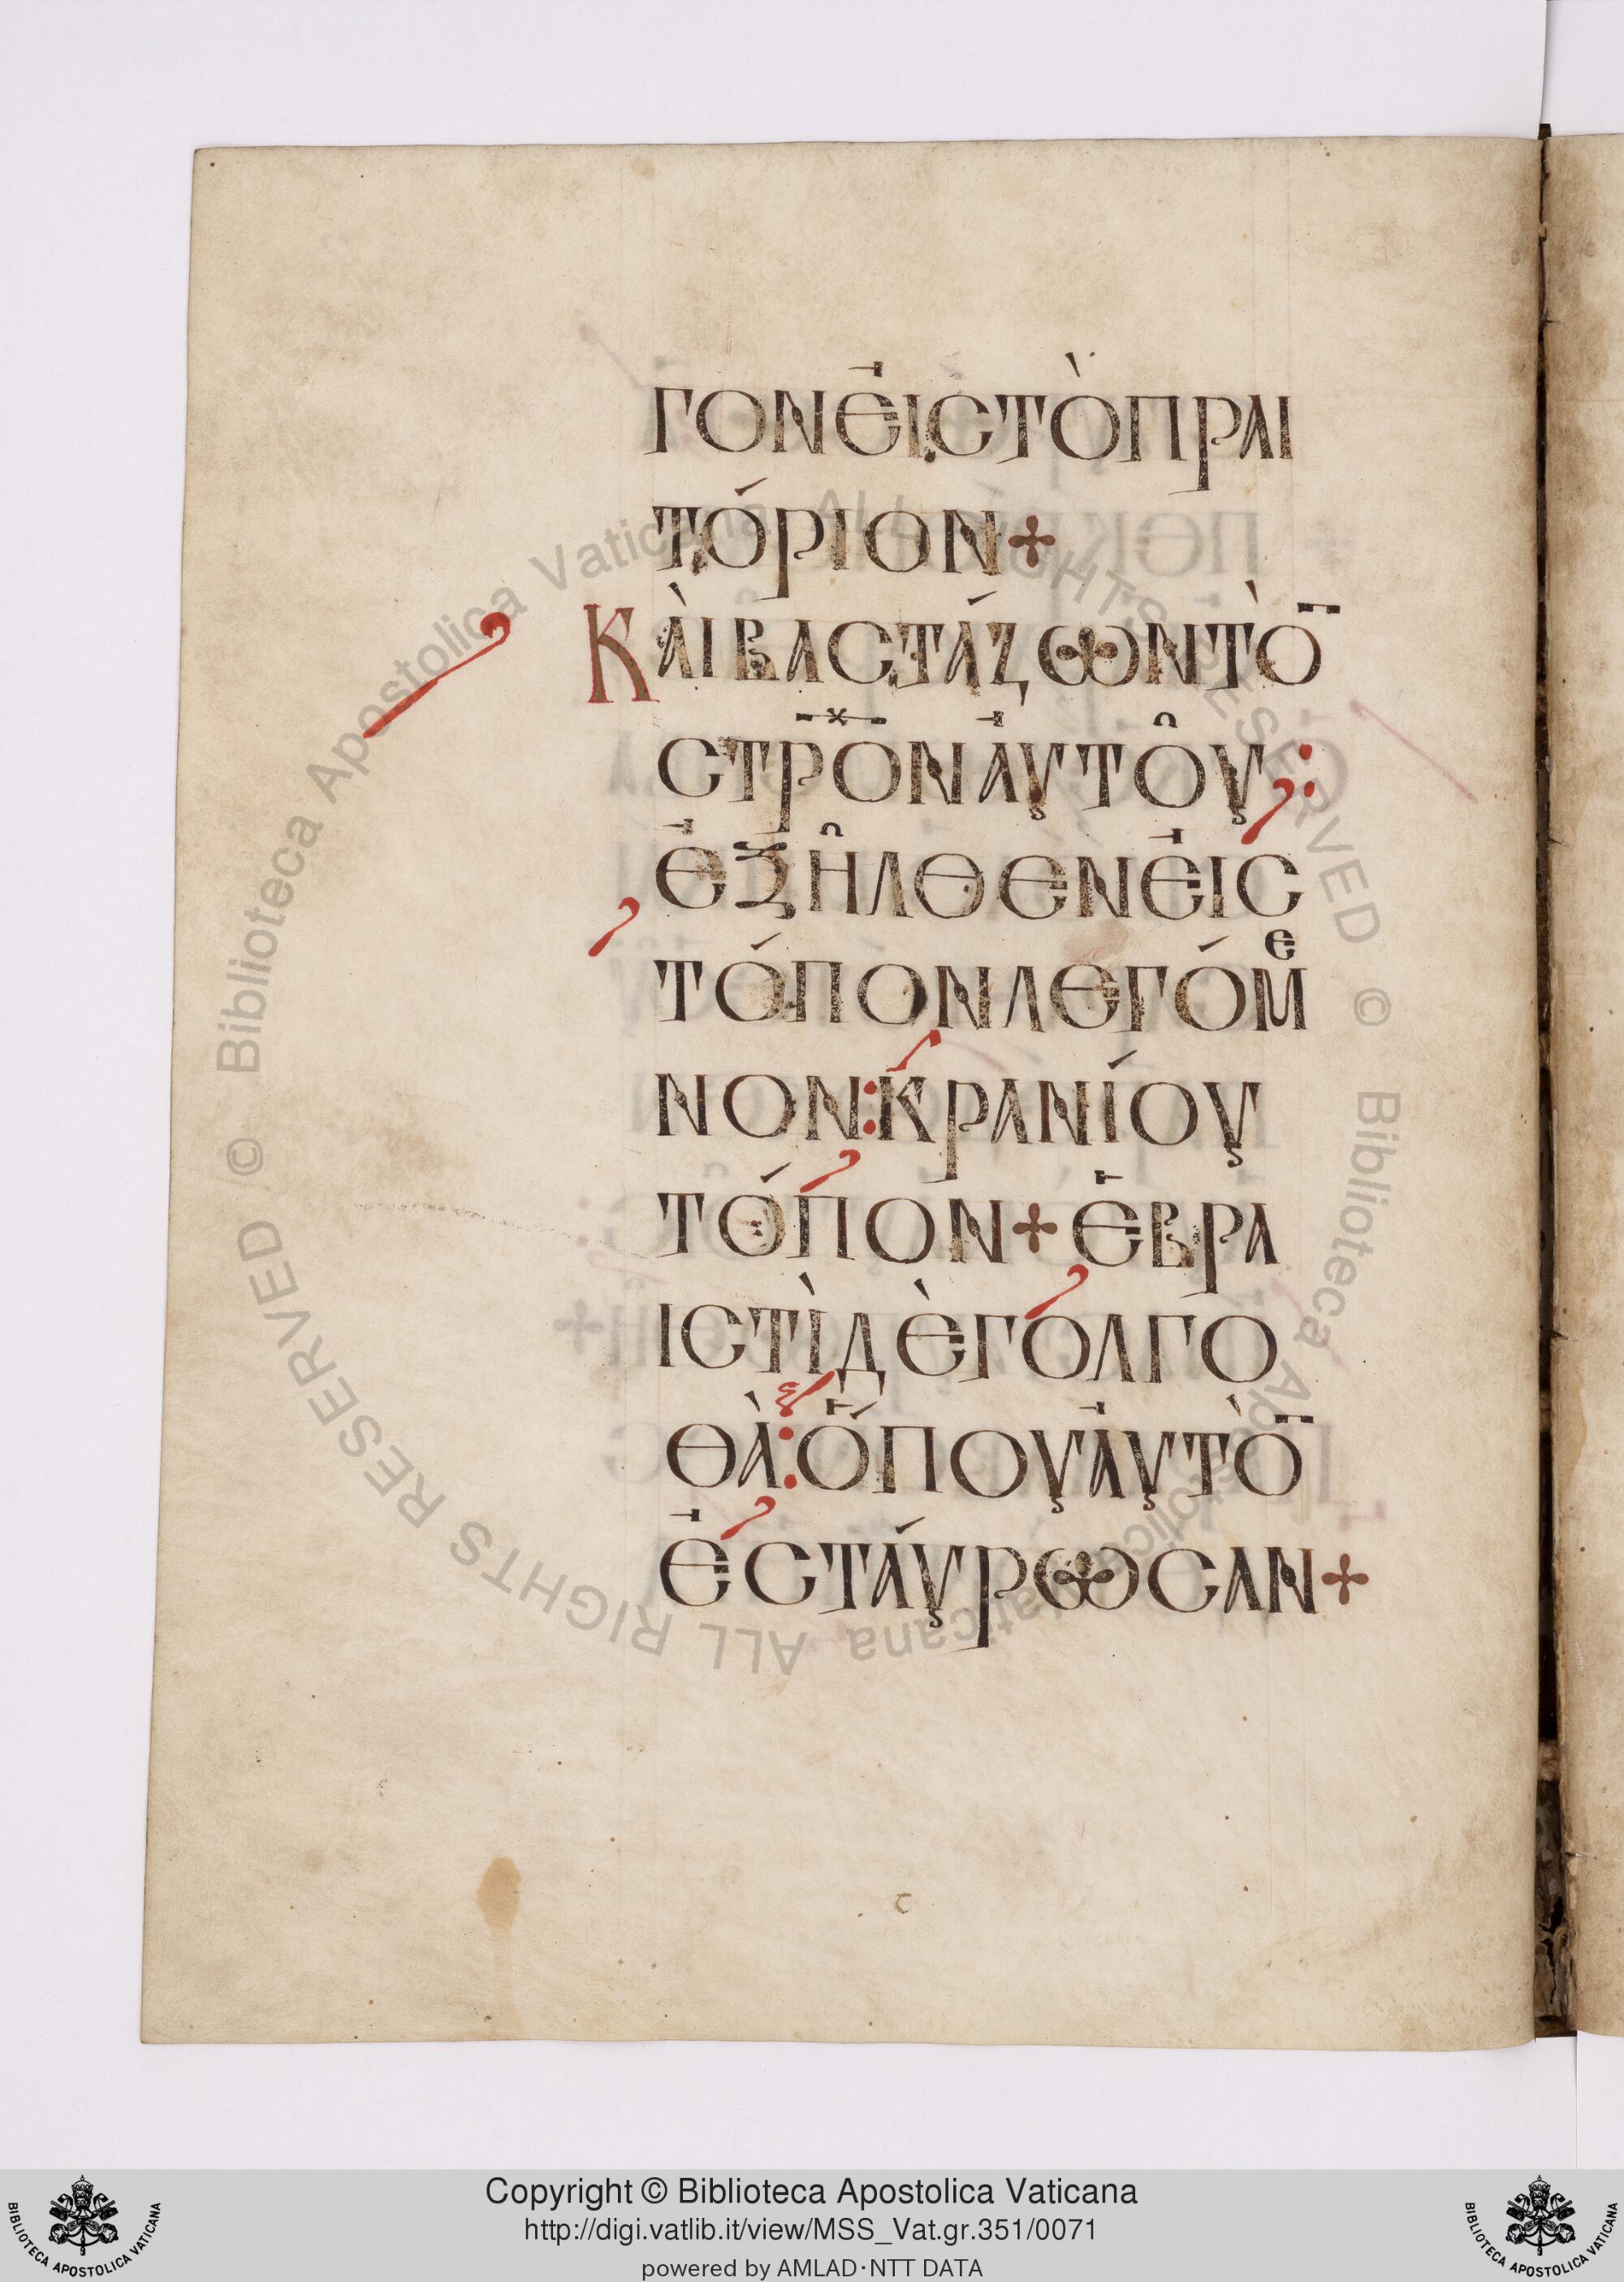 ΓΟΝἘΙϹΤῸΠΡΑΙ
ΤΌΡΙΟΝ+
ΚᾺΙΒΑϹΤΆΖΩΝΤΟ̅
ϹΤΡ̅Ο̅ΝἈΥΤΟ͂Υ:
ἘΞΗ͂ΛΘΕΝἘΙϹ
ΤΌΠΟΝΛΕΓΌΜΕ
ΝΟΝ:ΚΡΑΝΊΟΥ
ΤΌΠΟΝ+ἙΒΡΑ
ΙϹΤῚΔῈΓΟΛΓΟ
ΘᾺ:ὍΠΟΥἈΥΤῸ̅
ἘϹΤΆΥΡΩϹΑΝ+
© Biblioteca Apostolica Vaticana ALL RIGHTS RESERVED © Biblioteca Apostolica Vaticana ALL RIGHTS RESERVED
Copyright © Biblioteca Apostolica Vaticana
http://digi.vatlib.it/view/MSS_Vat.gr.351/0071
powered by AMLAD·NTT DATA
BIBLIOTECA APOSTOLICA VATICANA
BIBLIOTECA APOSTOLICA VATICANA